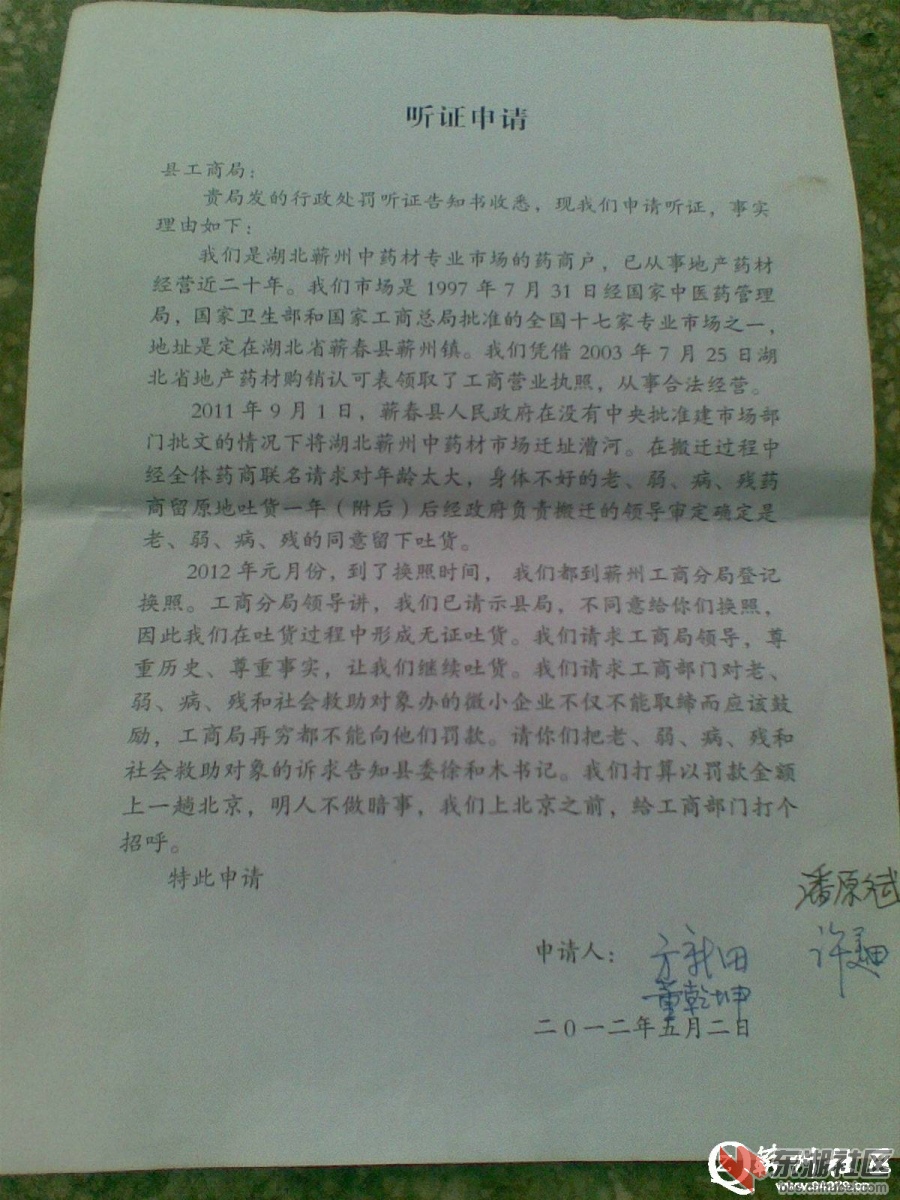 听证申请
县工商局：
贵局发的行政处罚听证告知书收悉，现我们申请听证，事实
理由如下：
我们是湖北蕲州中药材专业市场的药商户，已从事地产药材
经营近二十年。我们市场是1997年7月31日经国家中医药管理
局，国家卫生部和国家工商总局批准的全国十七家专业市场之一，
地址是定在湖北省蕲春县蕲州镇。我们凭借2003年7月25日湖
北省地产药材购销认可表领取了工商营业执照，从事合法经营。
2011年9月1日，蕲春县人民政府在没有中央批准建市场部
门批文的情况下将湖北蕲州中药材市场迁址漕河。在搬迁过程中
经全体药商联名请求对年龄太大，身体不好的老、弱、病、残药
商留原地吐货一年（附后）后经政府负责搬迁的领导审定确定是
老、弱、病、残的同意留下吐货。
2012年元月份，到了换照时间，我们都到蕲州工商分局登记
换照。工商分局领导讲，我们已请示县局，不同意给你们换照，
因此我们在吐货过程中形成无证吐货。我们请求工商局领导，尊
重历史、尊重事实，让我们继续吐货。我们请求工商部门对老、
弱、病、残和社会救助对象办的微小企业不仅不能取缔而应该鼓
励，工商局再穷都不能向他们罚款。请你们把老、弱、病、残和
社会救助对象的诉求告知县委徐和木书记。我们打算以罚款金额
上一趟北京，明人不做暗事，我们上北京之前，给工商部门打个
招呼。
特此申请
潘原斌
申请人：
董乾坤
二〇一二年五月二日
东湖社区